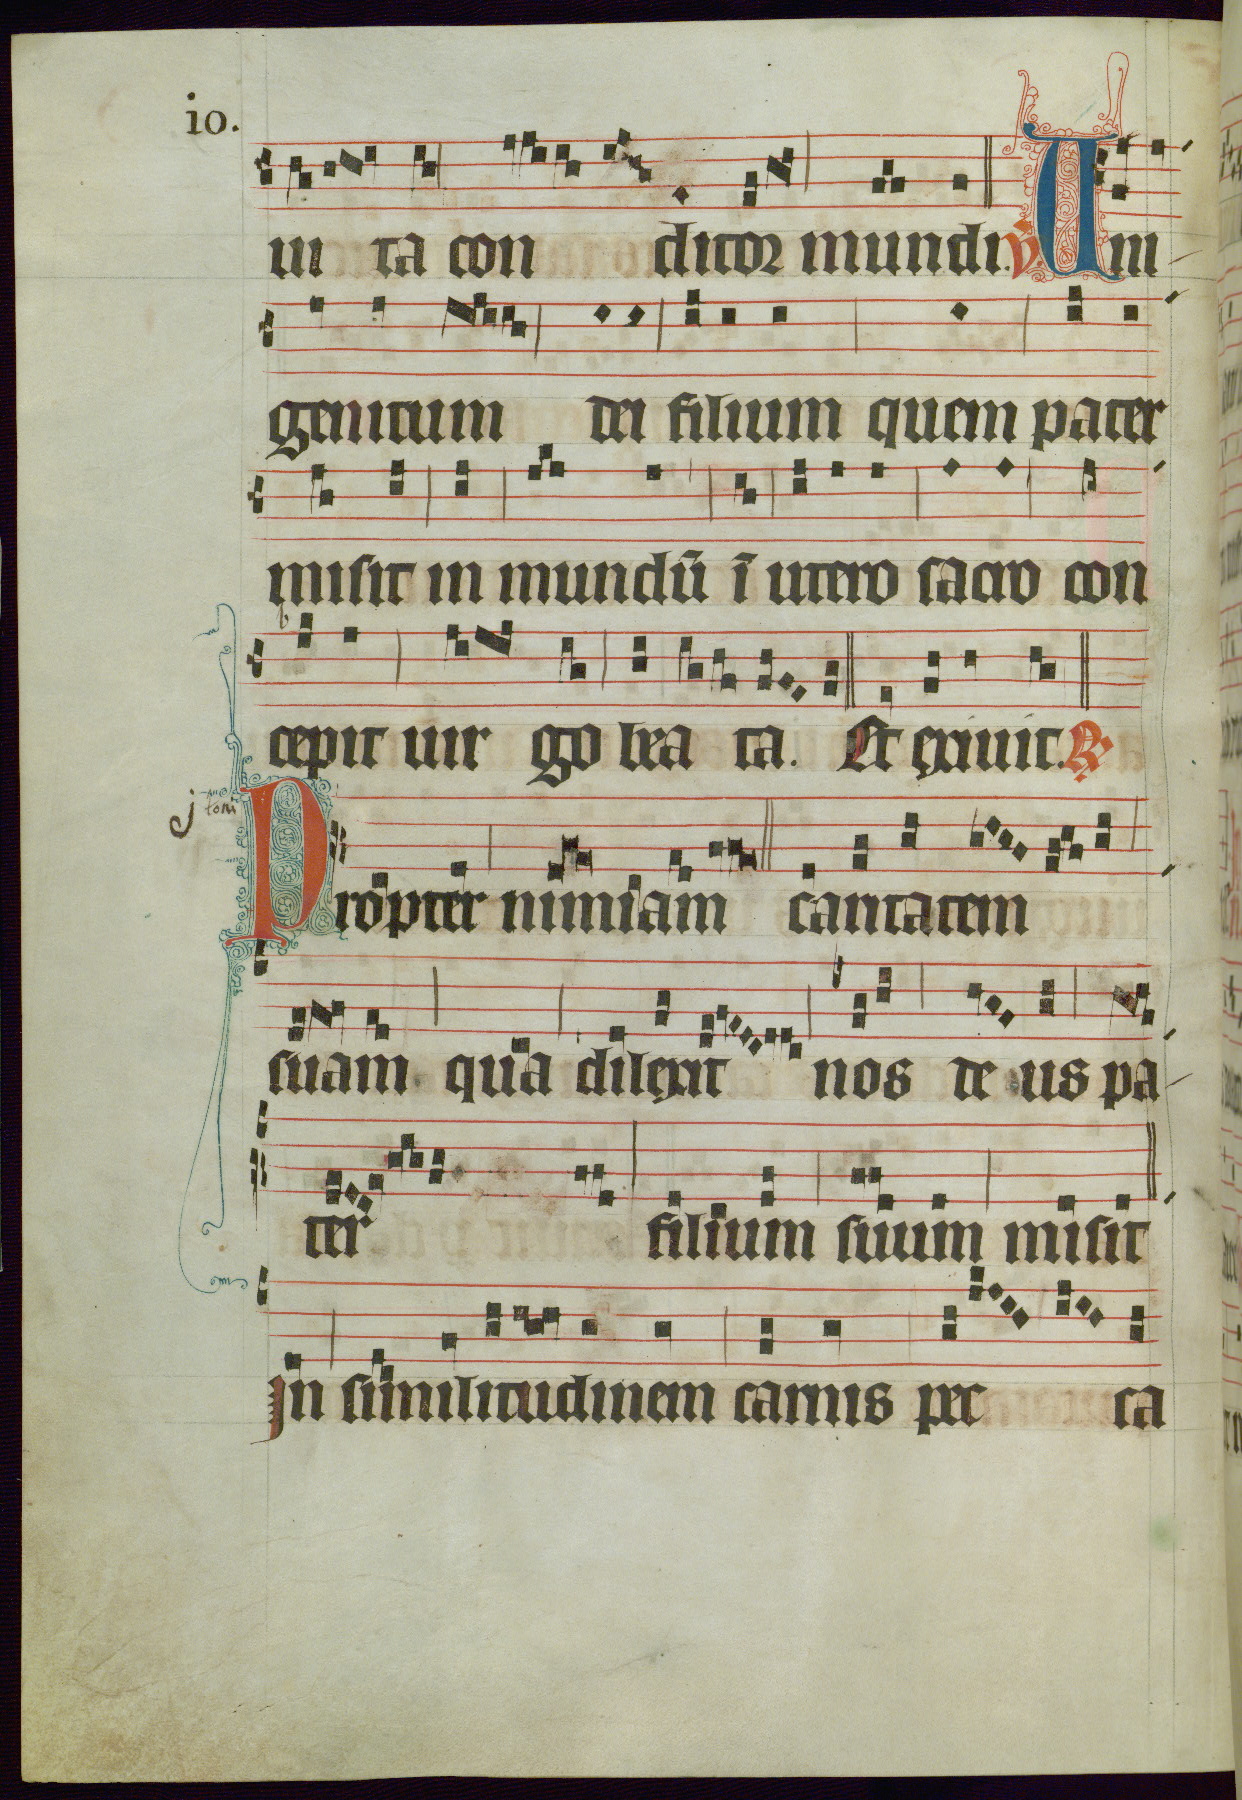 10.
ui ta con ditor mundi. ℣. Uni
genitum dei filium quem pater
misit in mundū ī utero sacro con
cepit uir go bea ta. Et exiuit. ℟
j toni
Propter nimiam caritatem
suam qua dilexit nos de us pa
ter filium suum misit
In similitudinem carnis pec ca